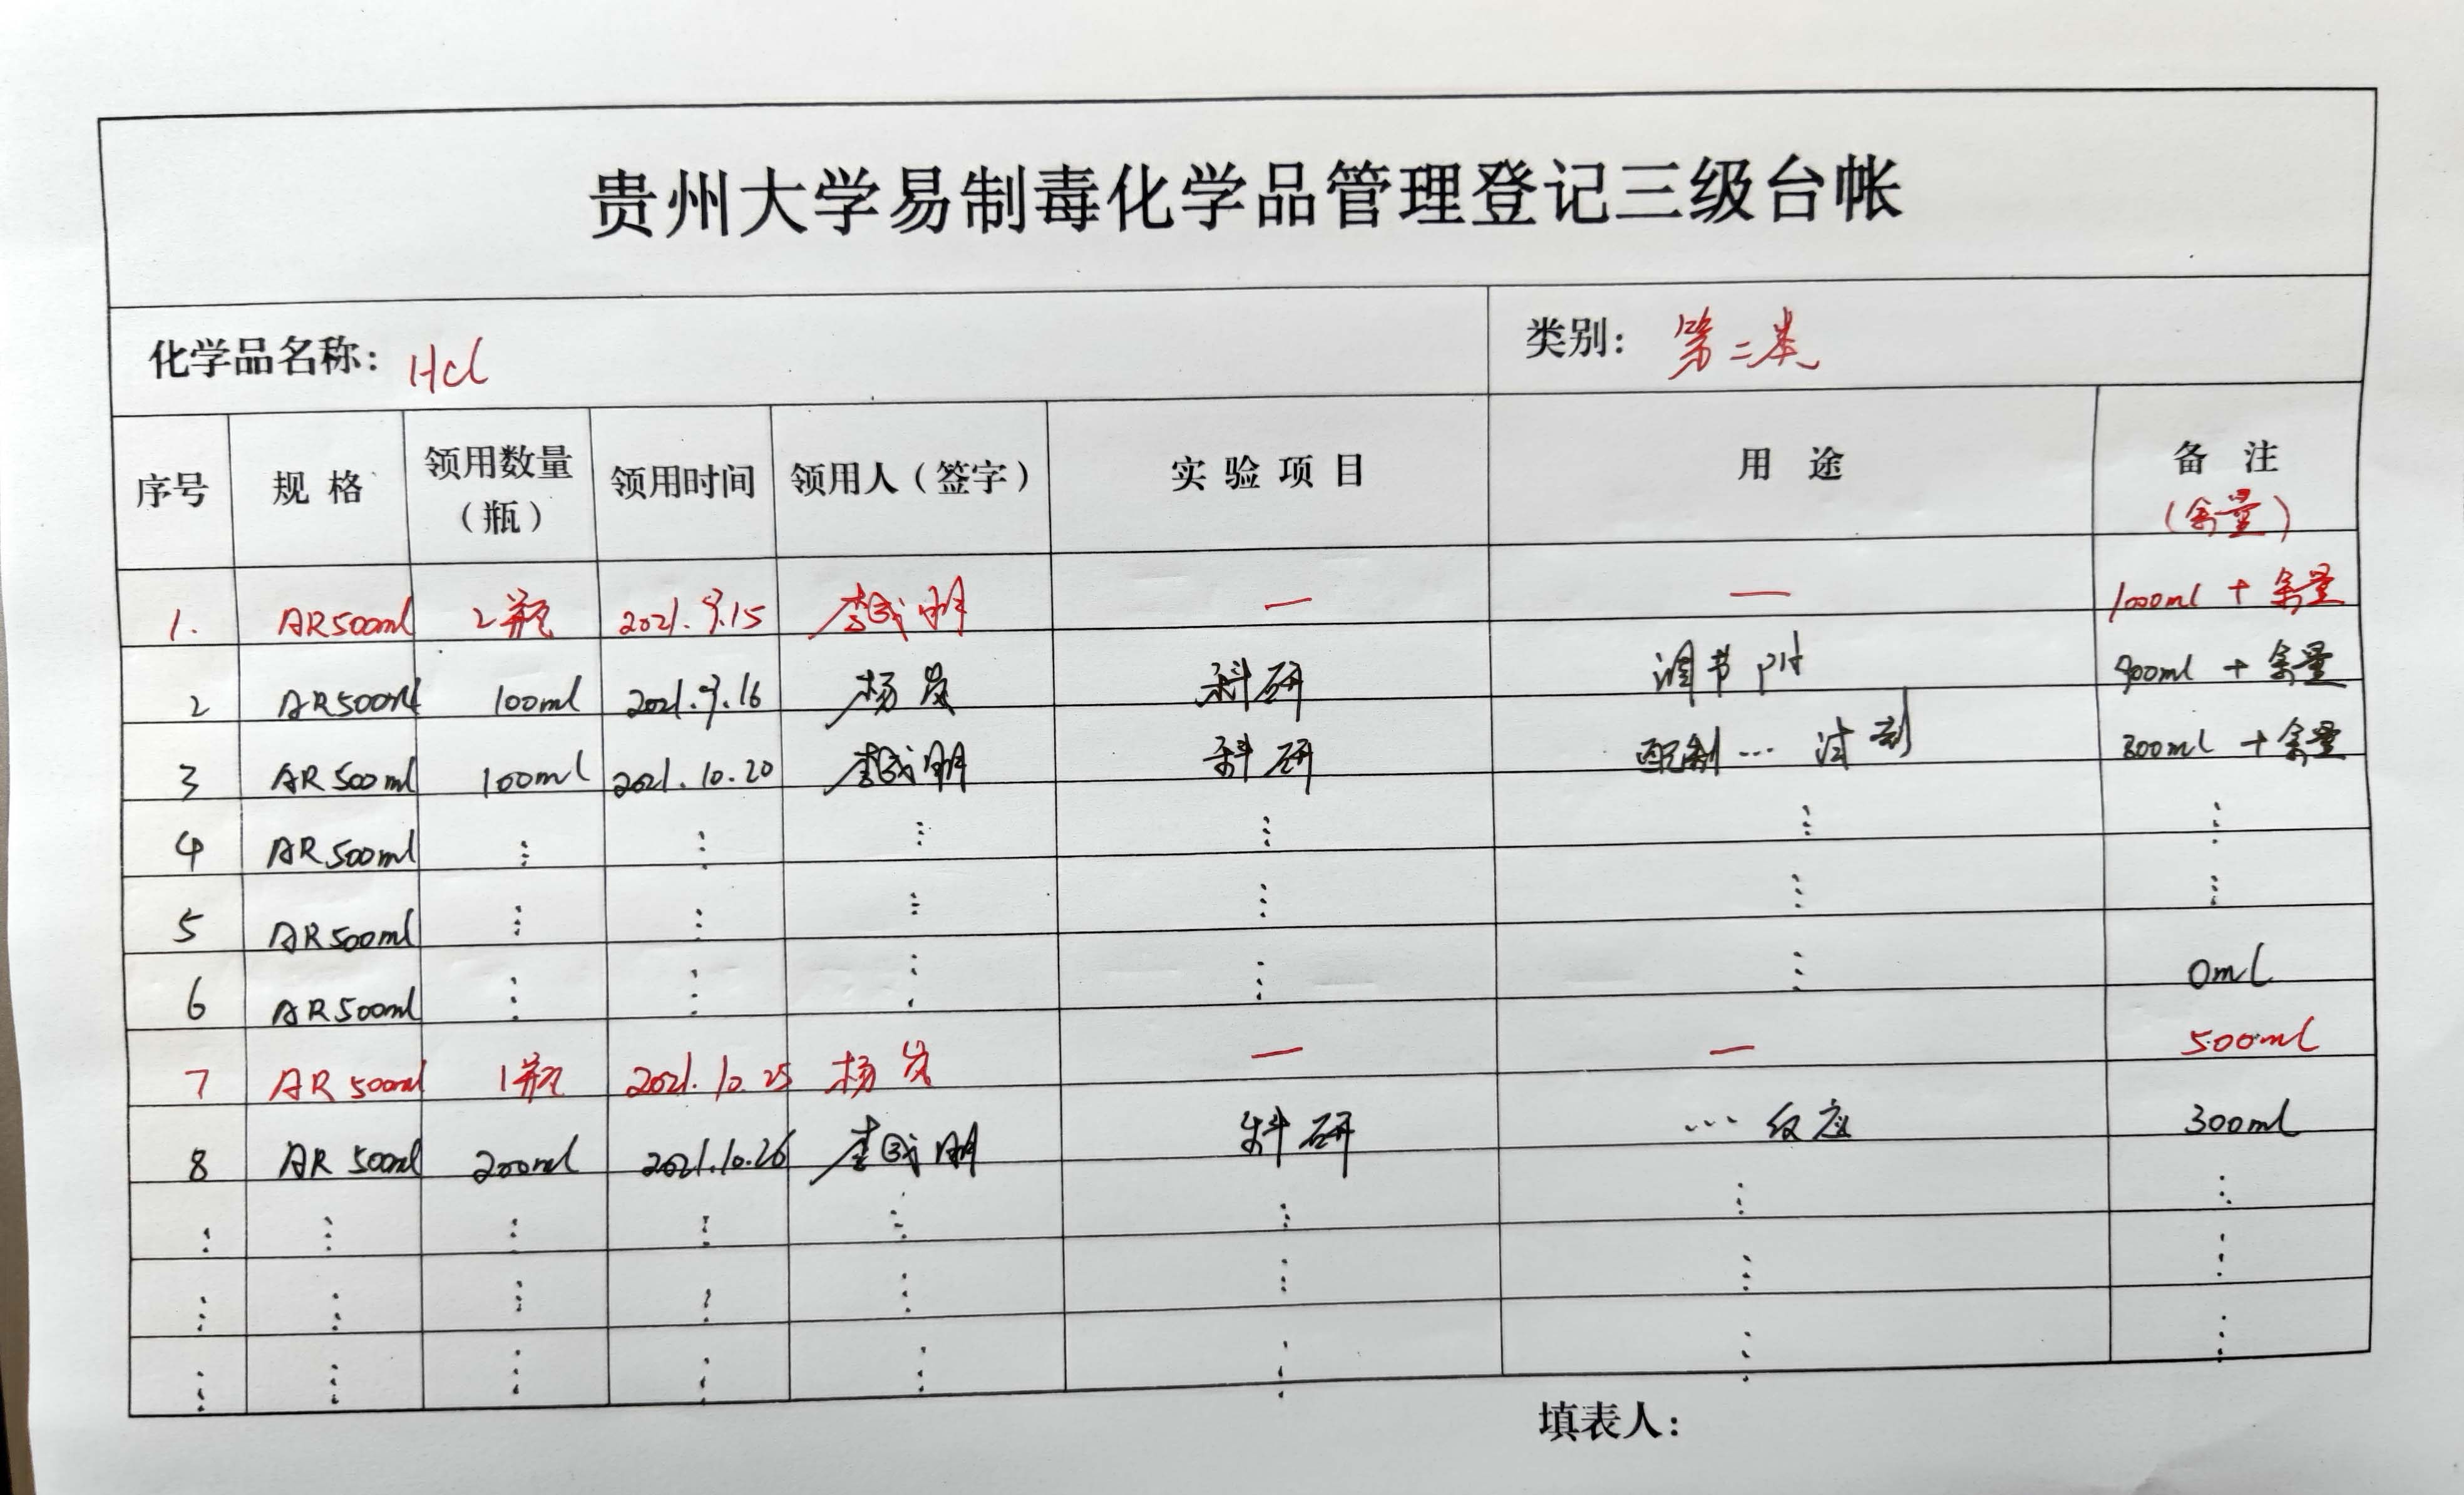 贵州大学易制毒化学品管理登记三级台帐
化学品名称: Hcl 类别: 第二类
序号 规格 领用数量(瓶) 领用时间 领用人(签字) 实验项目 用途 备注(余量)
1. AR500ml 2瓶 2021.9.15 李成明 — — 1000ml + 余量
2 AR500ml 100ml 2021.9.16 杨岚 科研 调节pH 900ml + 余量
3 AR500ml 100ml 2021.10.20 李成明 科研 配制…试剂 800ml + 余量
4 AR500ml ⋮ ⋮ ⋮ ⋮ ⋮ ⋮
5 AR500ml ⋮ ⋮ ⋮ ⋮ ⋮ ⋮
6 AR500ml ⋮ ⋮ ⋮ ⋮ ⋮ 0ml
7 AR500ml 1瓶 2021.10.25 杨岚 — — 500ml
8 AR500ml 200ml 2021.10.26 李成明 科研 …反应 300ml
⋮ ⋮ ⋮ ⋮ ⋮ ⋮ ⋮ ⋮
⋮ ⋮ ⋮ ⋮ ⋮ ⋮ ⋮ ⋮
⋮ ⋮ ⋮ ⋮ ⋮ ⋮ ⋮ ⋮
填表人: